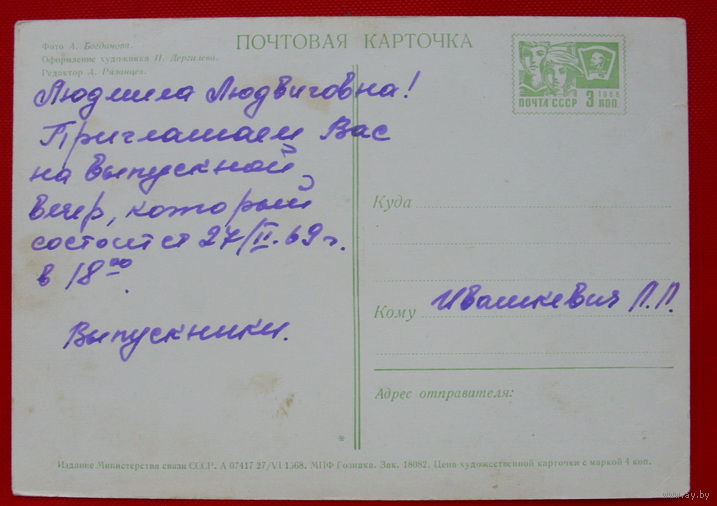 Фото А. Богданова.
Оформление художника П. Дергилева.
Редактор А. Рязанцев.
ПОЧТОВАЯ КАРТОЧКА
ПОЧТА СССР 1966 3 КОП.
Людмила Людвиговна!
Приглашаем Вас
на выпускной
вечер, который
состоится 27/II.69 г.
в 18⁰⁰.
Выпускники.
Куда
Кому Ивашкевич Л.Л.
Адрес отправителя:
*
Издание Министерства связи СССР. А 07417 27/VI 1968. МПФ Гознака. Зак. 18082. Цена художественной карточки с маркой 4 коп.
www.ay.by